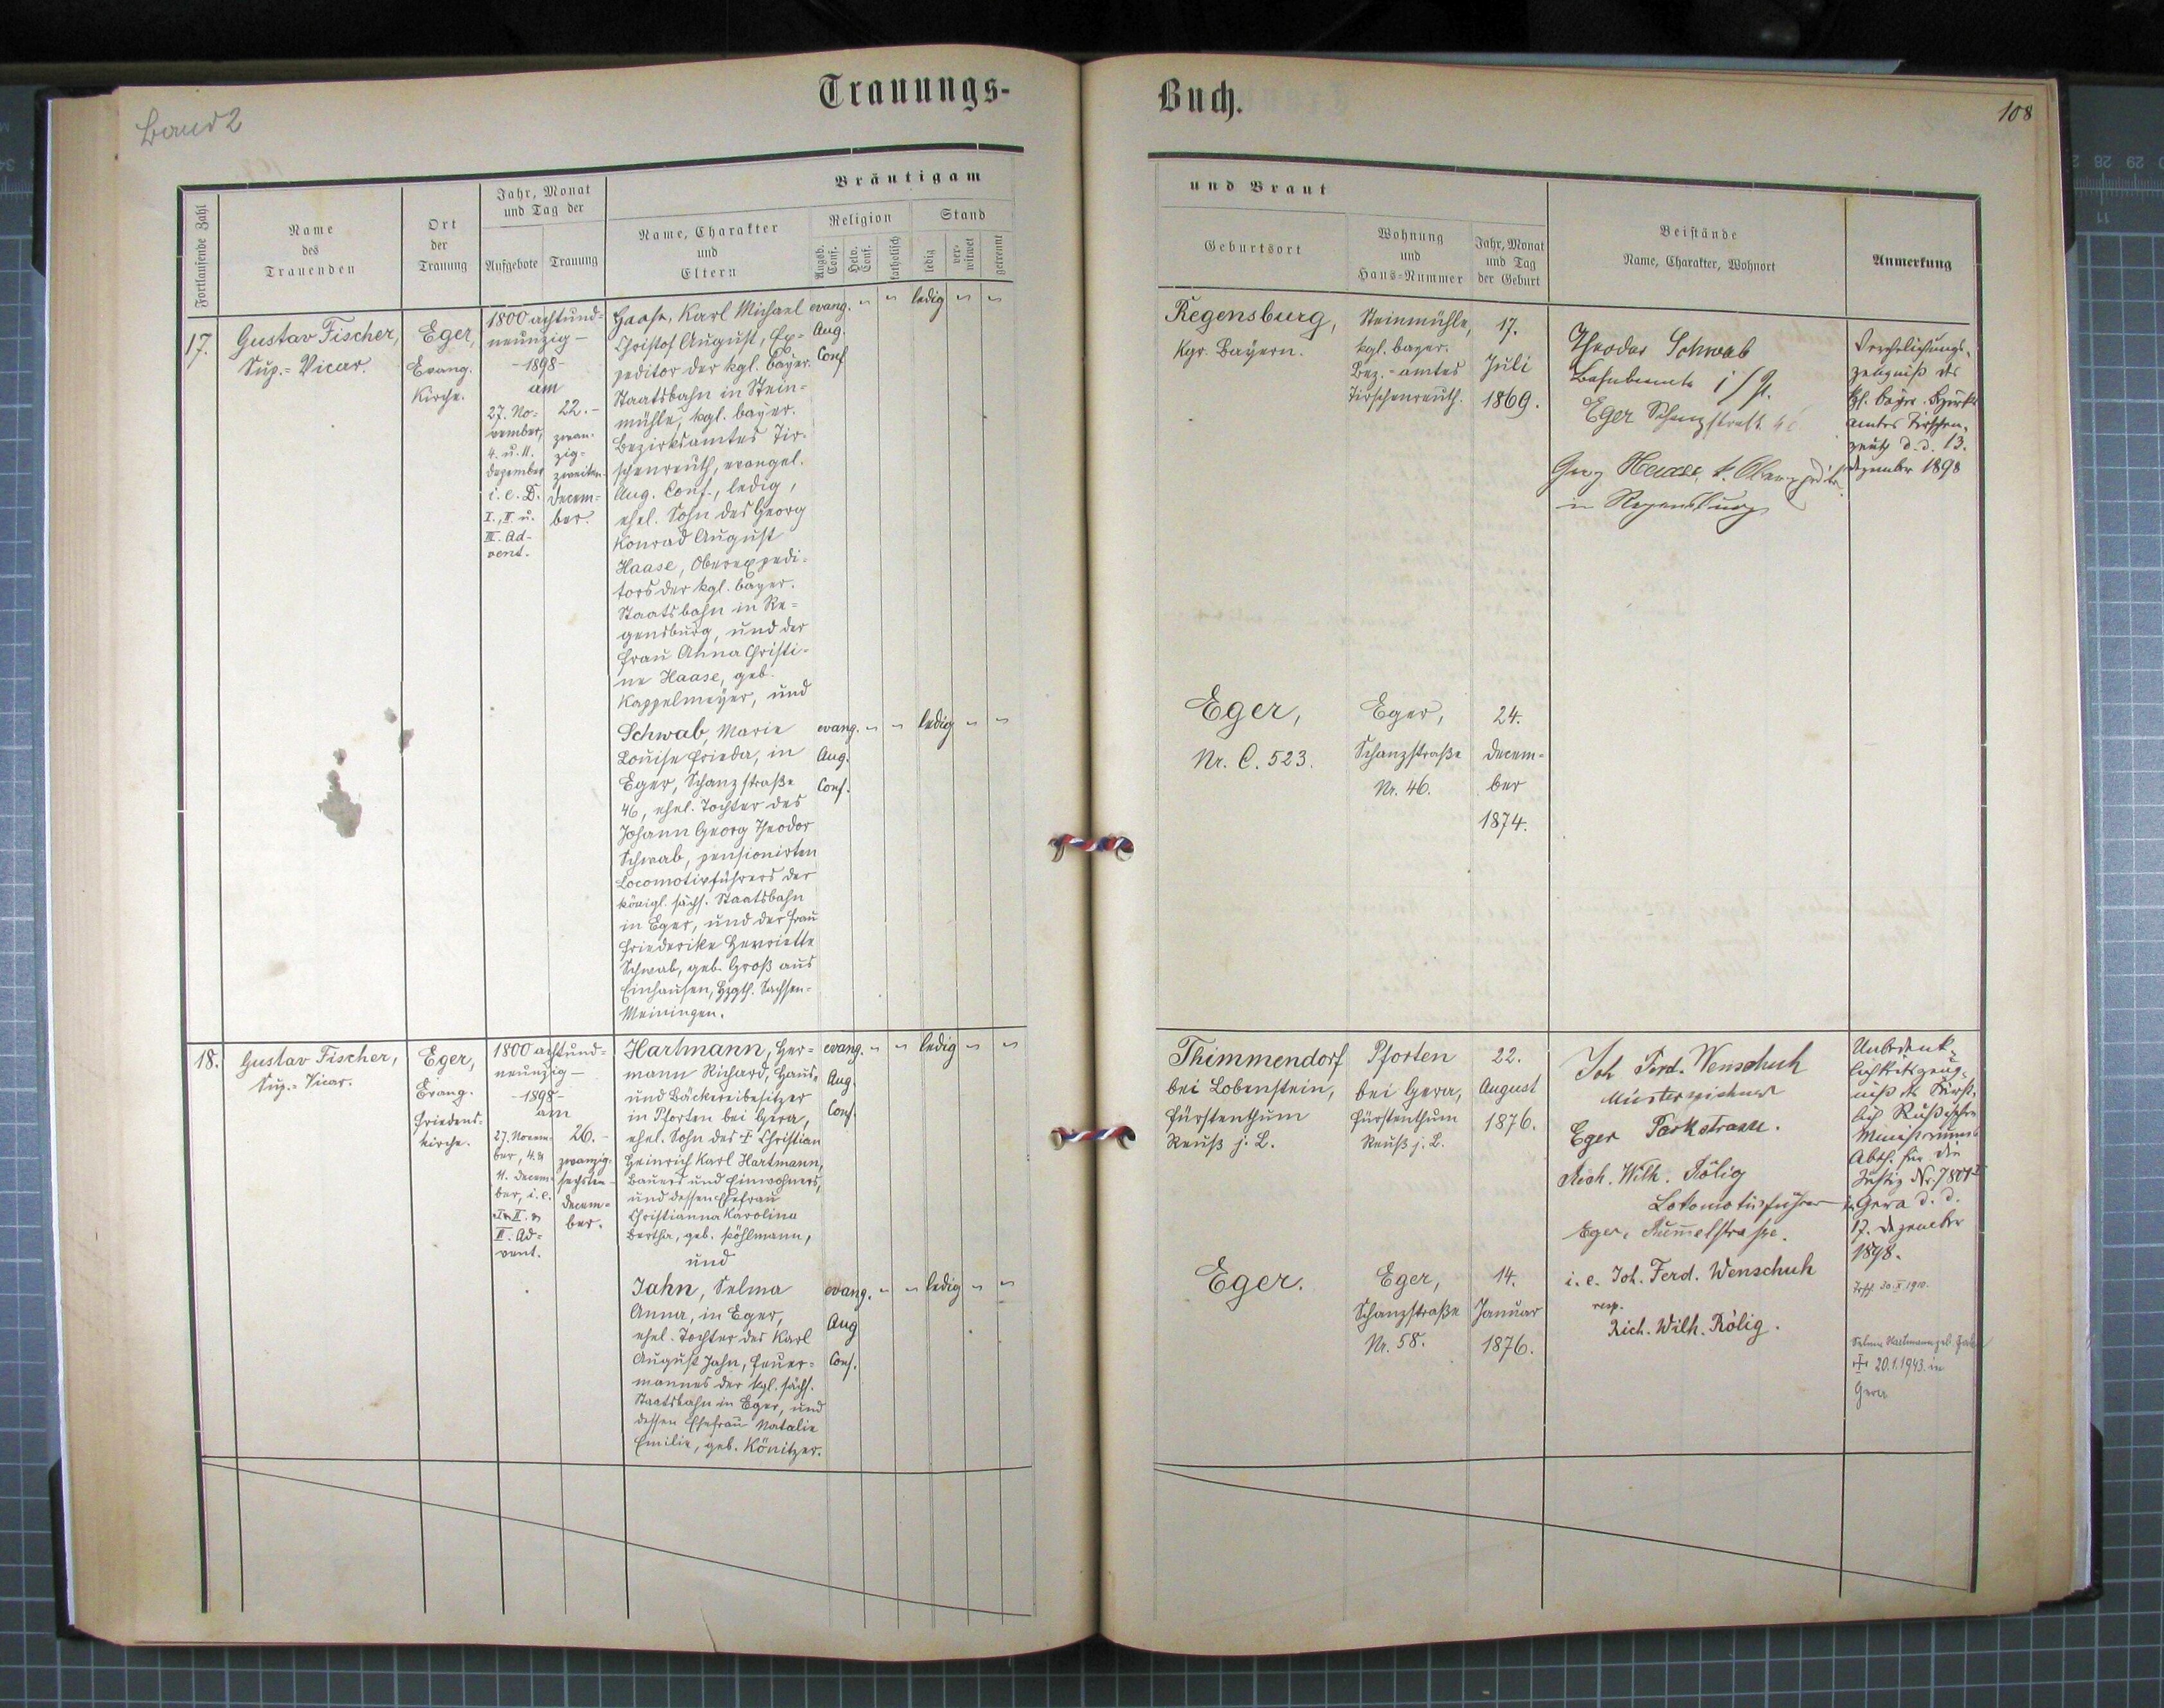 Band 2
Trauungs-
Fortlaufende Zahl
Name
des
Trauenden
Ort
der
Trauung
Jahr, Monat
und Tag der
Aufgebote
Trauung
Bräutigam
Name, Charakter
und
Eltern
Religion
Augsb. Conf.
Helv. Conf.
katholisch
Stand
ledig
verwitwet
getrennt
17.
Gustav Fischer,
Sup.-Vicar.
Eger,
Evang.
Kirche.
1800 achtund-
neunzig —
-1898-
am
27. No-
vember,
4. u. 11.
Dezember
i. e. D.
I., II. u.
III. Ad-
vent.
22.-
zwan-
zig-
zweiten
Decem-
ber.
Haase, Karl Michael
Christof August, Ex-
peditor der kgl. bayer.
Staatsbahn in Stein-
mühle, kgl. bayer.
Bezirksamtes Tir-
schenreuth, evangel.
Aug. Conf., ledig,
ehel. Sohn des Georg
Konrad August
Haase, Oberexpedi-
tors der kgl. bayer.
Staatsbahn in Re-
gensburg, und der
Frau Anna Christi-
ne Haase, geb.
Kappelmeyer, und
evang.
Aug.
Conf
" "
ledig
" "
Schwab, Marie
Louise Frieda, in
Eger, Schanzstraße
46, ehel. Tochter des
Johann Georg Theodor
Schwab, pensionirten
Locomotivführers der
königl. sächs. Staatsbahn
in Eger, und der Frau
Friederike Henriette
Schwab, geb. Groß aus
Einhausen, Hzgth. Sachsen-
Meiningen.
evang.
Aug.
Conf.
" "
ledig
" "
18.
Gustav Fischer,
Sup.-Vicar.
Eger,
Evang.
Friedens-
kirche.
1800 achtund-
neunzig —
-1898-
am
27. Novem-
ber, 4. &
11. Decem-
ber, i. e.
I. II. &
III. Ad-
vent.
26.-
zwanzig-
sechsten
Decem-
ber.
Hartmann, Her-
mann Richard, Haus-
und Bäckereibesitzer
in Pforten bei Gera,
ehel. Sohn des † Christian
Heinrich Karl Hartmann,
Bauers und Einwohners,
und dessen Ehefrau
Christianna Karolina
Bertha, geb. Pöhlmann,
und
evang.
Aug.
Conf.
" "
ledig
" "
Jahn, Selma
Anna, in Eger,
ehel. Tochter des Karl
August Jahn, Feuer-
mannes der kgl. sächs.
Staatsbahn in Eger, und
dessen Ehefrau Natalie
Emilie, geb. Könitzer.
evang.
Aug
Conf.
" "
ledig
" "
Buch.
108
und Braut
Geburtsort
Wohnung
und
Haus-Nummer
Jahr, Monat
und Tag
der Geburt
Beistände
Name, Charakter, Wohnort
Anmerkung
Regensburg,
Kgr. Bayern.
Steinmühle,
kgl. bayer.
Bez.-amtes
Tirschenreuth.
17.
Juli
1869.
Theodor Schwab
Bahnbeamte i/P.
Eger Schanzstraße 46
Georg Haase, k. Oberexpeditor
in Regensburg
Verehelichungs-
zeugniß des
kgl. bayer. Bezirks
amtes Tirschen-
reuth d. d. 13.
Dezember 1898
Eger,
Nr. C. 523.
Eger,
Schanzstraße
Nr. 46.
24.
Decem-
ber
1874.
Thimmendorf
bei Lobenstein,
Fürstenthum
Reuß j. L.
Pforten
bei Gera,
Fürstenthum
Reuß j. L.
22.
August
1876.
Joh Ferd. Wenschuh
Musterzeichner
Eger Parkstrasse.
Rich. Wilh. Rölig
Lokomotivführer
Eger, Rummelstraße.
i. e. Joh. Ferd. Wenschuh
resp.
Rich. Wilh. Rölig.
Unbedenk-
lichkeitszeug-
niß des Fürst-
lich Reußischen
Ministeriums
Abth. für die
Justiz Nr. 7801
Gera d. d.
17. Dezember
1898.
30. X. 1910.
Selma Hartmann geb. Jahn
† 20.1.1943. in
Gera
Eger.
Eger,
Schanzstraße
Nr. 58.
14.
Januar
1876.